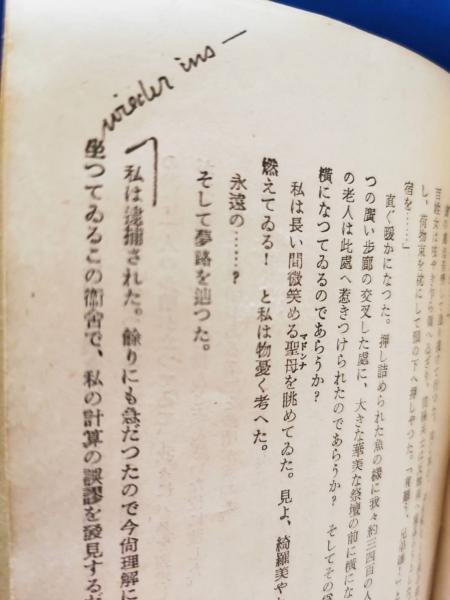 宿を……」
直ぐ暖かになつた。押し詰められた魚の様に我々約三四百の人
つの廣い歩廊の交叉した處に、大きな華美な祭壇の前に横にな
の老人は此處へ惹きつけられたのであらうか？ そしてその
横になつてゐるのであらうか？
私は長い間微笑める聖母を眺めてゐた。見よ、綺羅美や
マドンナ
燃えてゐる！ と私は物憂く考へた。
永遠の……？
そして夢路を辿つた。
wieder ins —
「私は逮捕された。餘りにも急だつたので今尚理解に
坐つてゐるこの衞舍で、私の計算の誤謬を發見するが